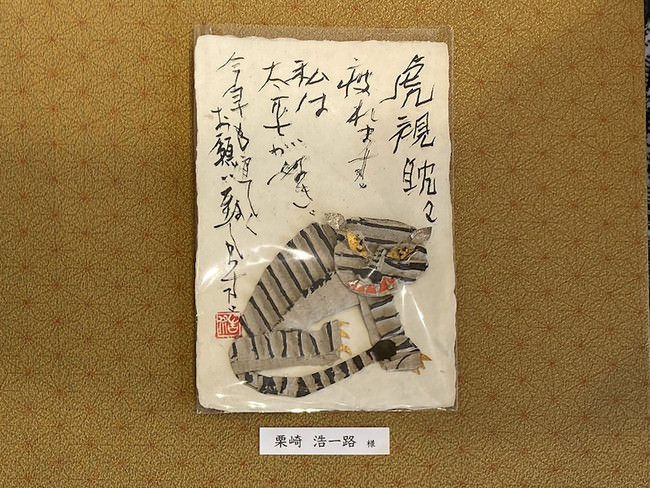 虎視眈々
疲れます。
私は
太平が好き。
今年も宜しく
お願い致します。
栗崎 浩一路 様